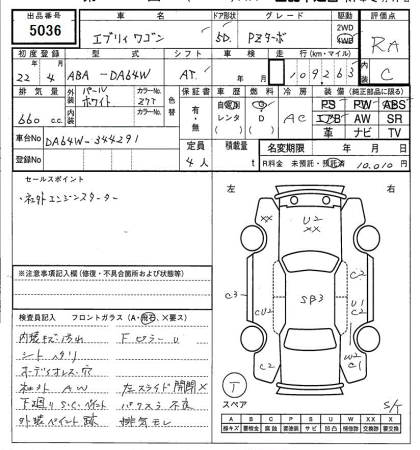 出品番号 車名 ドア形状 グレード 駆動 評価点
5036 エブリィワゴン 5D. PZターボ 2WD 4WD RA
初度登録 型式 シフト 車検 走行(km・マイル) 内装
22年4月 ABA-DA64W AT. 年 月 109265 C
排気量 外装 パールホワイト カラーNo. Z7T 色替 保証書 車歴 燃料 冷房 装備(純正部品に限る)
660cc 内装 カラーNo. 有・無 自家 レンタ G D AC PS PW ABS
エアB AW SR
革 ナビ TV
車台No DA64W-344291 定員 積載量 名変期限 年 月 日
登録No 4人 t R料金 未預託・預託済 10,010円
セールスポイント
・社外エンジンスターター
左 右
XX U2 XX
C2
C3 CU2 SB3 U1 C2
C2 W2 C1
※注意事項記入欄(修復・不具合箇所および状態等)
検査員記入 フロントガラス(A・飛石、×要ス)
内装キズ・汚れ 下回ラー U
シートヘタリ
オーディオレス・穴
社外AW 左スライド開閉×
下廻りS・C・ペイント バックスラ 不良
外装ペイント跡 排気モレ
T
スペア S/T
A B C P S U W X XX
線キズ 要検査 腐蝕 要塗装 サビ 凹凸 補修跡 要交換 交換済